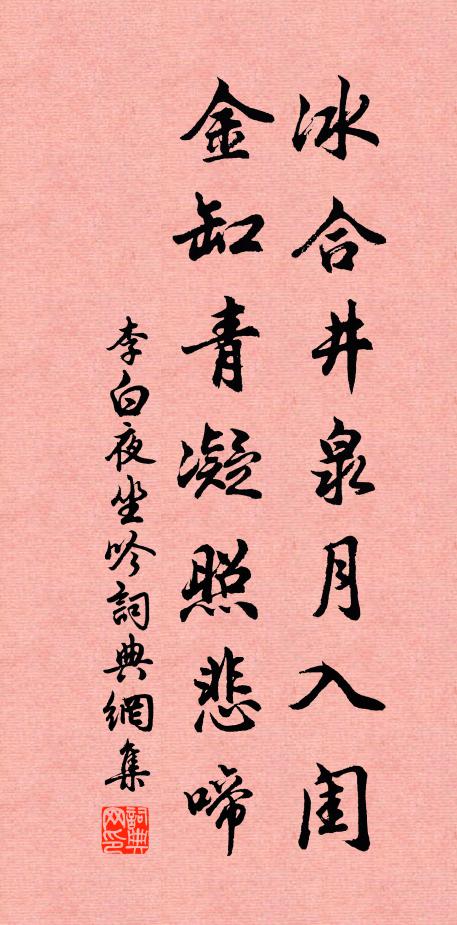 冰合井泉月入闺
金缸青凝照悲啼
李白夜坐吟詞典網集
詞典网印